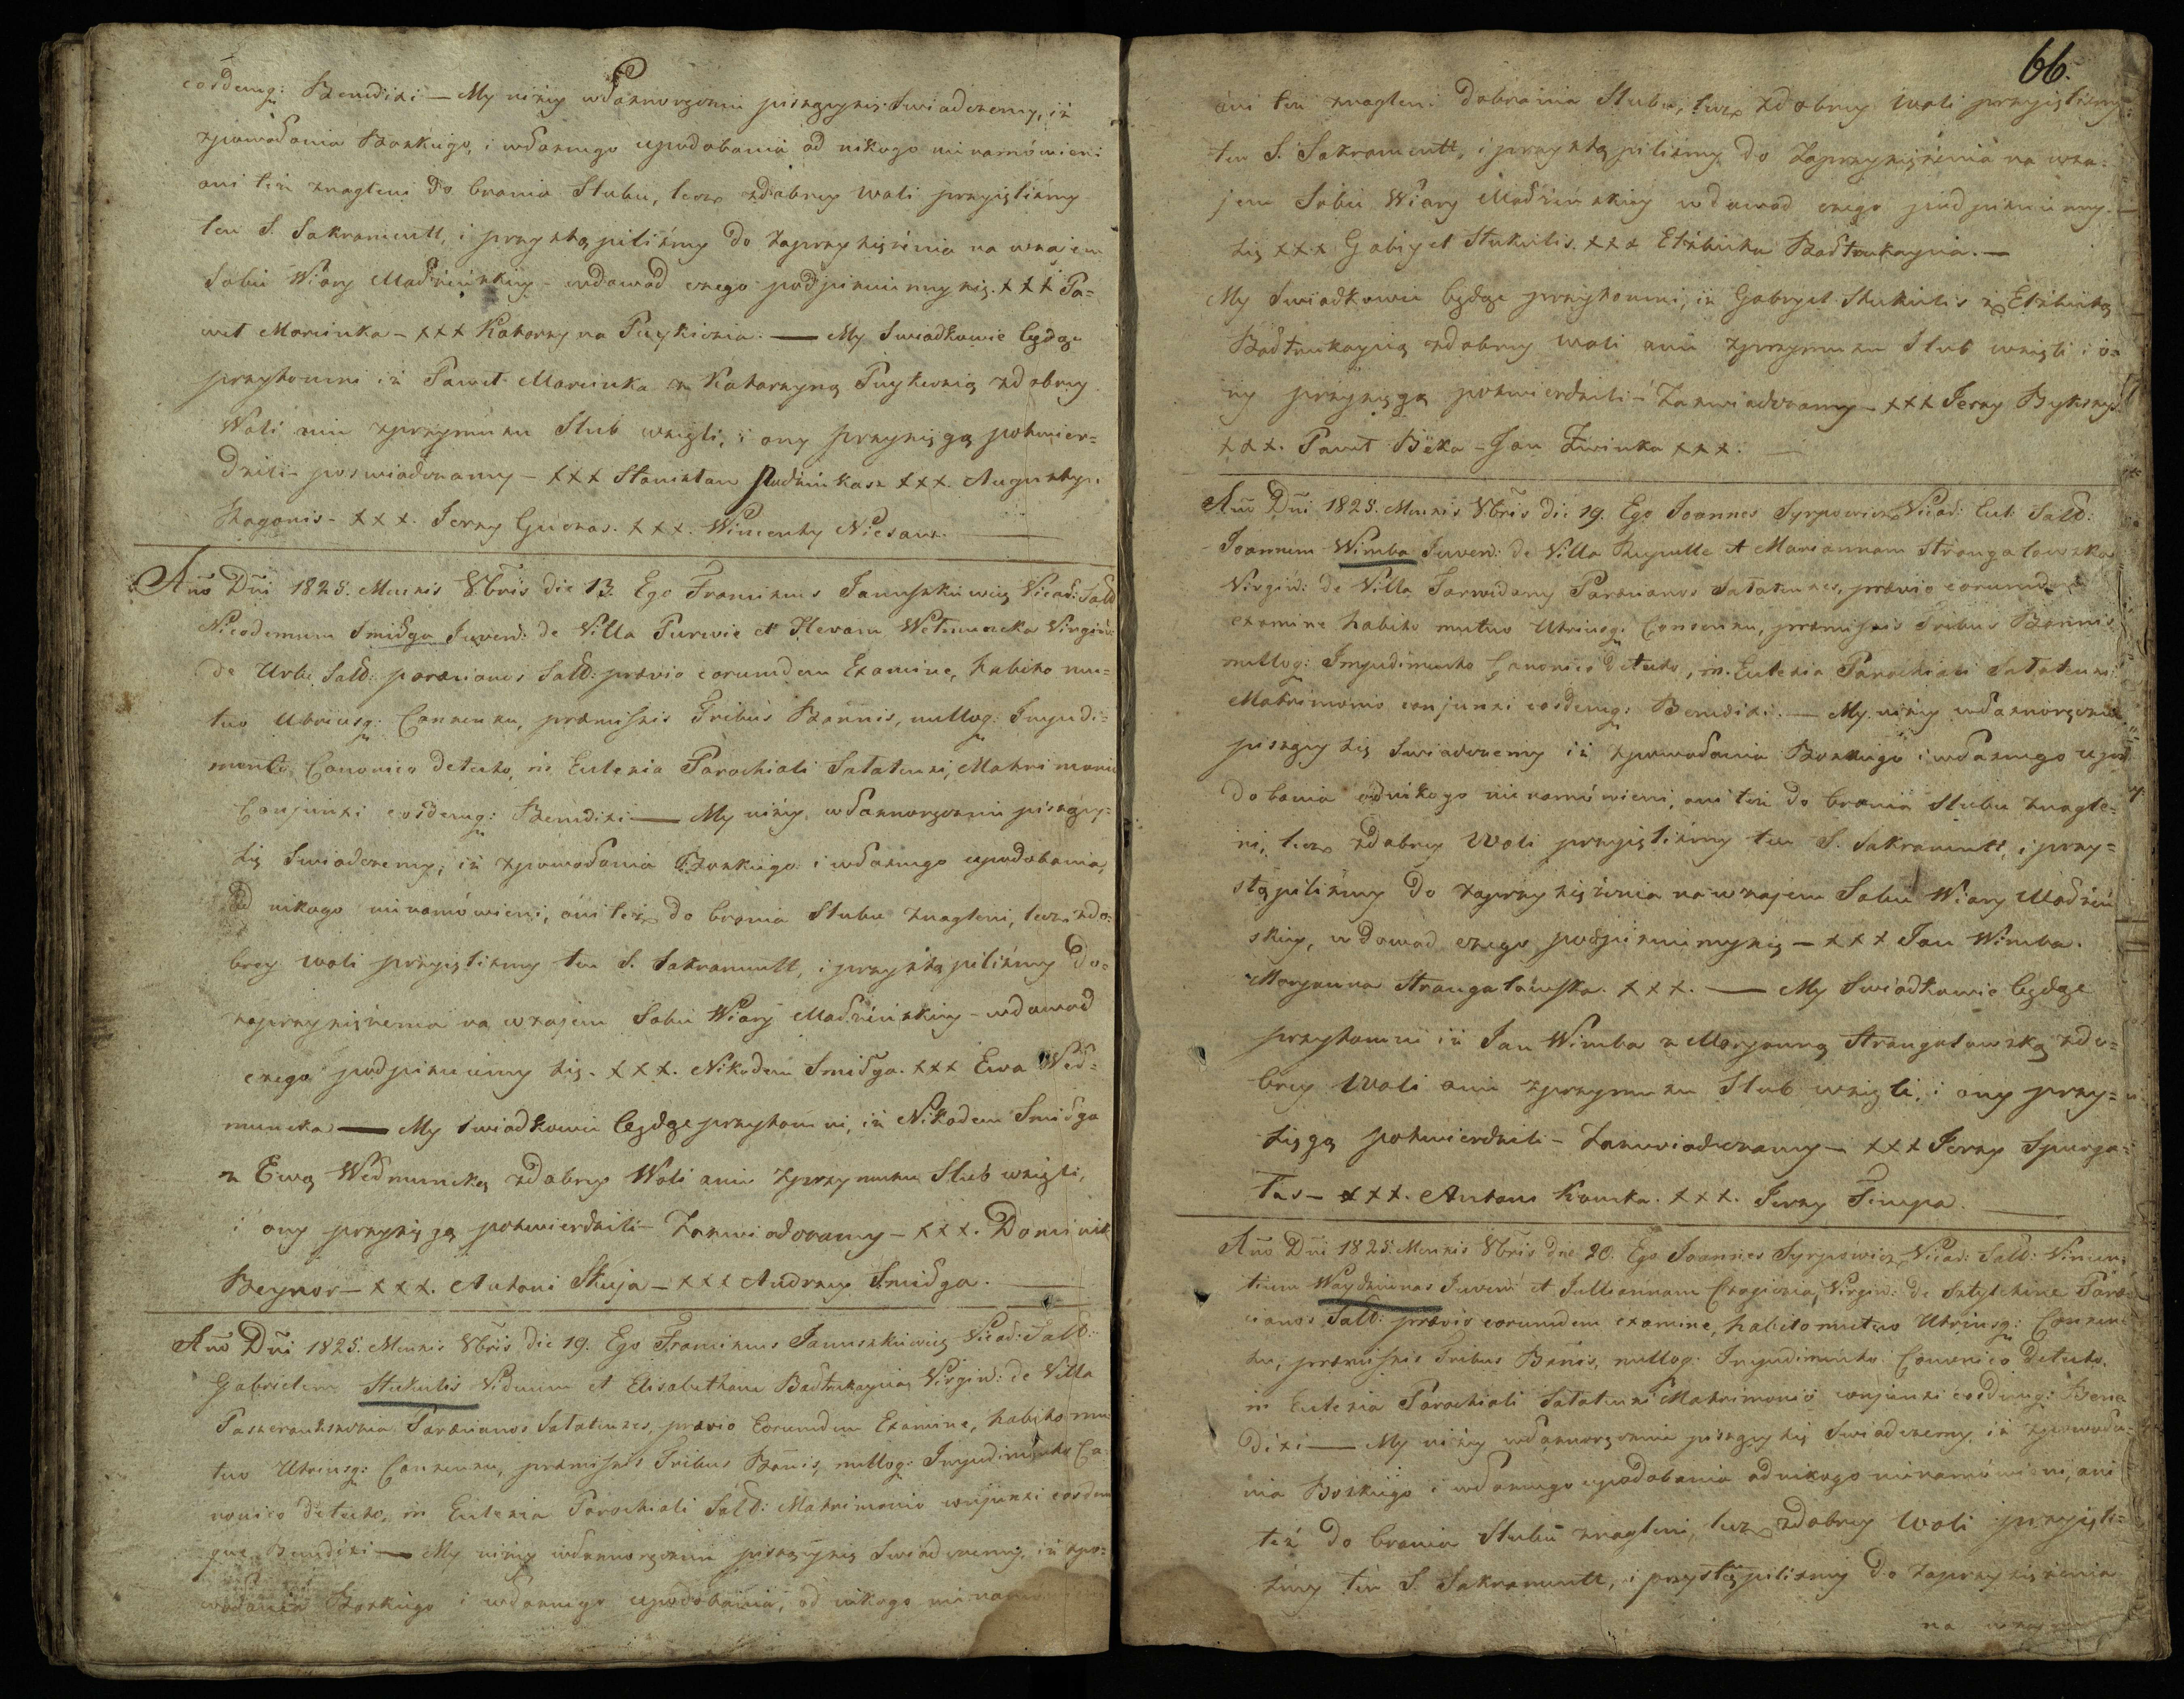 eosdemq: Benedixi — My niżey własnoręcznie piszący się Swiadczemy, iż
zpowołania Bozkiego, i własnego upodobania od nikogo nie namówieni
ani też znagleni do brania Slubu, lecz zdobrey woli przyięlismy
ten S. Sakramentt, i przystąpilismy do zaprzysięzenia na wzajem
Sobie Wiary Małżeńskiey - wdowod czego podpisuiemy się. +++ Pa=
weł Marcinka - +++ Katarzyna Puykicznia. — My Swiadkowie będąc
przytomni iż Paweł Marcinka z Katarzyną Puykicznią zdobrey
Woli ani zprzymusu Slub wzięli, i ony przysięgą potwier=
dzili poswiadczamy - +++ Stanisław Pudzinkasz +++. Augustyn
Ragonis - +++. Jerzy Guczas. +++. Wincenty Niesauz.
Ano Dni 1825. Mensis 8bris die 13. Ego Franciscus Januszkiewicz Vicar: Sałł
Nicodemum Smiłga Juven: de Villa Purwie et Hevam Wełmuncka Virgin:
de Urbe Sałł: paraianos Sałł: prævio eorumdem Examine, habito mu=
tuo Utriusq: Consensu, præmissis Tribus Bannis, nulloq: Impedi=
mento Canonico detecto, in Eclesia Parochiali Sałatensi, Matrimonio
Conjunxi eosdemq: Benedixi — My niżey własnoręcznie piszący=
się Swiadczemy, iż zpowołania Bozkiego i własnego upodobania,
od nikogo nie namówieni, ani też do brania Slubu znagleni, lecz zdo=
brey woli przyięlismy ten S. Sakramentt, i przystąpilismy do=
zaprzysięzenia na wzajem Sobie Wiary Małżeńskiey - wdowod
czego podpisuiemy się. +++. Nikodem Smiłga. +++ Ewa Weł=
muncka — My swiadkowie będąc przytomni, iż Nikodem Smiłga
z Ewą Wełmuncką zdobrey Woli ani zprzymusu Slub wzięli,
i ony przysięgą potwierdzili - Zaswiadczamy - +++. Dominik
Beynor - +++. Antoni Skuja - +++ Andrzey Smiłga.
Ano Dni 1825. Mensis 8bris die 19. Ego Franciscus Januszkiewicz Vicar: Sałł:
Gabrielem Stukulis Viduum et Elisabetham Bałtrukaynia Virgin: de Villa
Paraianos Sałatenses, prævio Eorumdem Examine, habito mu
tuo Utriusq: Consensu, præmissis Tribus Banis, nulloq: Impedimento Ca
nonico detecto, in Eclesia Parochiali Sałł: Matrimonio conjunxi eosdem
que Benedixi — My niżey własnoręcznie piszący się Swiadczemy, iż zpo=
wołania Bozkiego i własnego upodobania, od nikogo nie namo
66.
ani też znagleni do brania Slubu, lecz zdobrey woli przyięlismy
ten S. Sakramentt, i przystąpilismy do Zaprzysięzenia na wza=
jem Sobie Wiary Małżeńskiey wdowod czego podpisuiemy -
się +++ Gabryel Stukulis. +++ Elżbieta Bałtrukaynia. —
My Swiadkowie będąc przytomni, iż Gabryel Stukulis z Elżbietą
Bałtrukaynią zdobrey woli ani zprzymusu Slub wzięli i o=
ny przysięgą potwierdzili - Zaswiadczamy - +++ Jerzy Bykszys
+++. Paweł Beka - Jan Zwinka +++. —
Ano Dni 1825. Mensis 8bris die 19. Ego Joannes Syrpowicz Vicar: Ecl: Sałł:
Joannem Wimba Juven: de Villa et Mariannam Strangalowska
Virgin: de Villa Jarwidany Paraianos Sałatenses, prævio eorumdem
examine habito mutuo Utriusq: Consensu, præmissis Tribus Bannis,
nulloq: Impedimento Canonico detecto, in Eclesia Parochiali Sałatensi
Matrimonio conjunxi eosdemq: Benedixi. — My niżey własnoręcznie
piszący się Swiadczemy iż zpowołania Bozkiego i własnego upo=
dobania od nikogo nie namówieni, ani też do brania Slubu znagle=
ni, lecz zdobrey Woli przyięlismy ten S. Sakramentt, i przy=
stąpilismy do zaprzysięzenia na wzajem Sobie Wiary Małżeń
skiey, wdowod czego podpisuiemy się - +++ Jan Wimba.
Maryanna Strangalowska. +++. — My Swiadkowie będąc
przytomni iż Jan Wimba z Maryanną Strangalowską zdo=
brey Woli ani zprzymusu Slub wzięli, i ony przy=
sięgą potwierdzili - Zaswiadczamy - +++ Jerzy Spurga=
Tas - +++. Antoni Kauska. +++. Jerzy Timpa. —
Ano Dni 1825. Mensis 8bris die 20. Ego Joannes Syrpowicz Vicar: Sałł: Vincen=
tium Waydziunas Juven: et Juliannam Virgin: de Parai
ianos Sałł: prævio eorumdem examine, habito mutuo Utriusq: Consen=
su, præmissis Tribus Banis, nulloq: Impedimento Canonico detecto,
in Eclesia Parochiali Sałatensi Matrimonio conjunxi eosdemq: Bene
dixi — My niżey własnoręcznie piszący się Swiadczemy iż zpowoła=
nia Bozkiego i własnego upodobania od nikogo nie namówieni, ani
też do brania Slubu znagleni, lecz zdobrey Woli przyięli=
smy ten S. Sakramentt, i przystąpilismy do Zaprzysięzenia
na wzajem